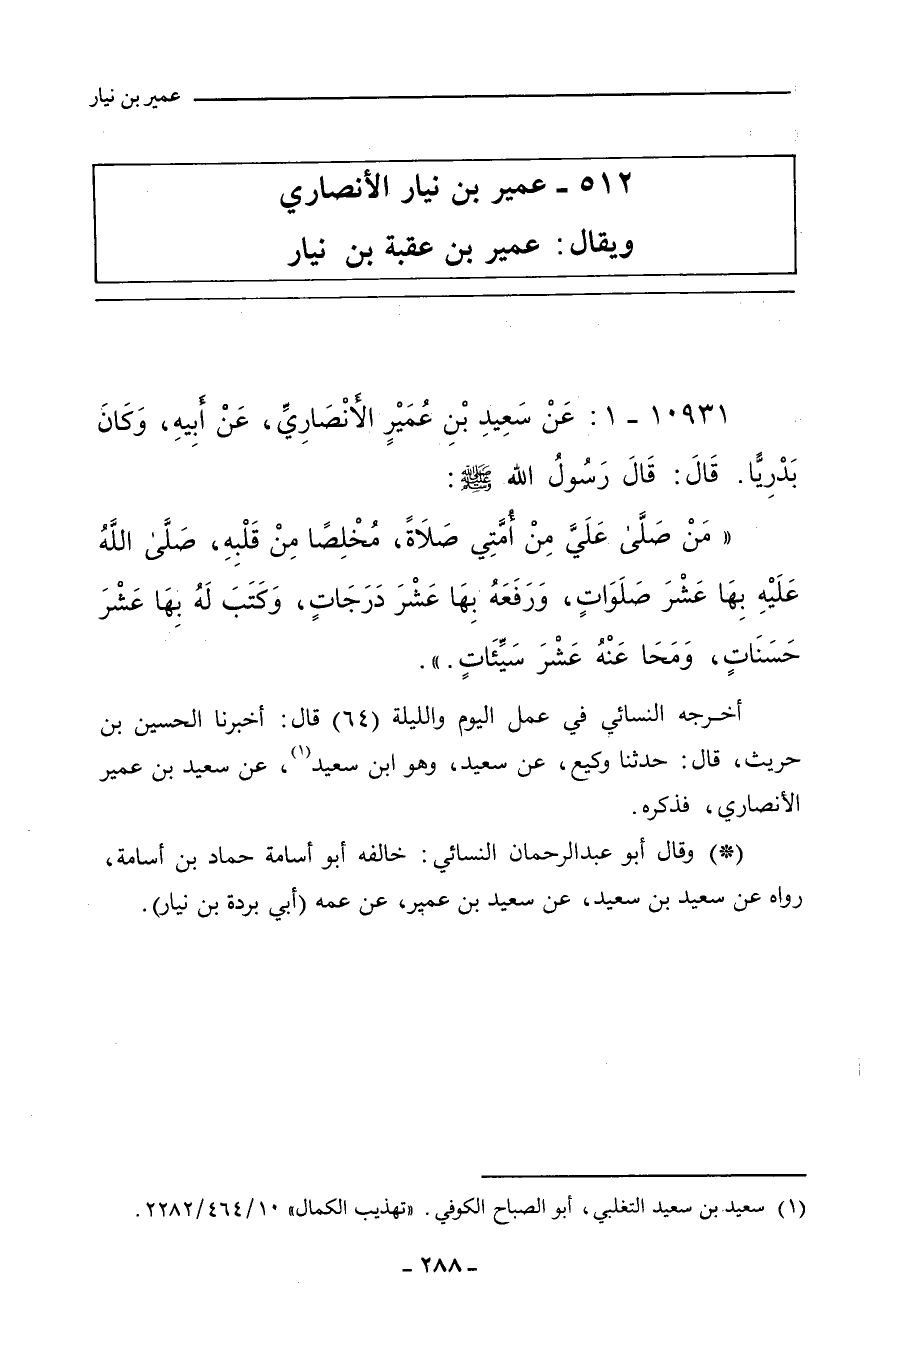 عمير بن نيار
٥١٢ - عمير بن نيار الأنصاري
ويقال: عمير بن عقبة بن نيار
١٠٩٣١ - ١: عَنْ سَعِيدِ بْنِ عُمَيْرٍ الأَنْصَارِيِّ، عَنْ أَبِيهِ، وَكَانَ
بَدْرِيًّا. قَالَ: قَالَ رَسُولُ الله ﷺ:
« مَنْ صَلَّىٰ عَلَيَّ مِنْ أُمَّتِي صَلَاةً، مُخْلِصًا مِنْ قَلْبِهِ، صَلَّىٰ اللَّهُ
عَلَيْهِ بِهَا عَشْرَ صَلَوَاتٍ، وَرَفَعَهُ بِهَا عَشْرَ دَرَجَاتٍ، وَكَتَبَ لَهُ بِهَا عَشْرَ
حَسَنَاتٍ، وَمَحَا عَنْهُ عَشْرَ سَيِّئَاتٍ.».
أخرجه النسائي في عمل اليوم والليلة (٦٤) قال: أخبرنا الحسين بن
حريث، قال: حدثنا وكيع، عن سعيد، وهو ابن سعيد(١)، عن سعيد بن عمير
الأنصاري، فذكره.
(*) وقال أبو عبدالرحمان النسائي: خالفه أبو أسامة حماد بن أسامة،
رواه عن سعيد بن سعيد، عن سعيد بن عمير، عن عمه (أبي بردة بن نيار).
(١) سعيد بن سعيد التغلبي، أبو الصباح الكوفي. «تهذيب الكمال» ١٠/٤٦٤/٢٢٨٢.
- ٢٨٨ -